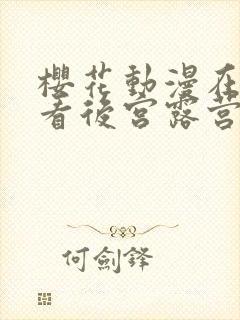 櫻花動漫在
看後宮露營
何劍鋒